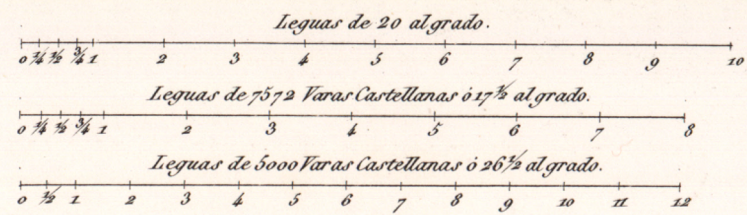 Leguas de 20 al grado.
0 1/4 1/2 3/4 1 2 3 4 5 6 7 8 9 10
Leguas de 7572 Varas Castellanas ó 17 1/2 al grado.
0 1/4 1/2 3/4 1 2 3 4 5 6 7 8
Leguas de 5000 Varas Castellanas ó 26 1/2 al grado.
0 1/2 1 2 3 4 5 6 7 8 9 10 11 12